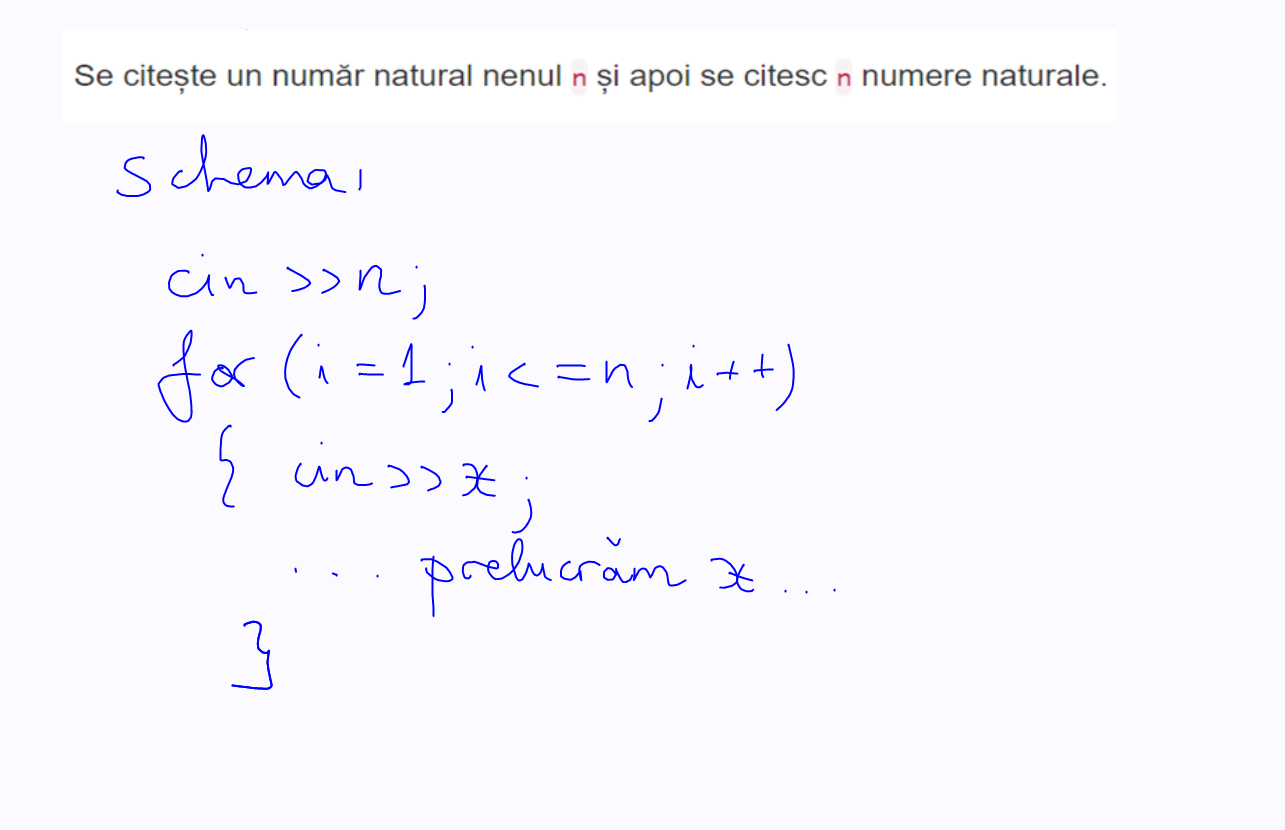 Se citește un număr natural nenul n și apoi se citesc n numere naturale.
Schema:
cin >>n;
for (i=1; i<=n; i++)
{ cin>>x;
... prelucrăm x ...
}